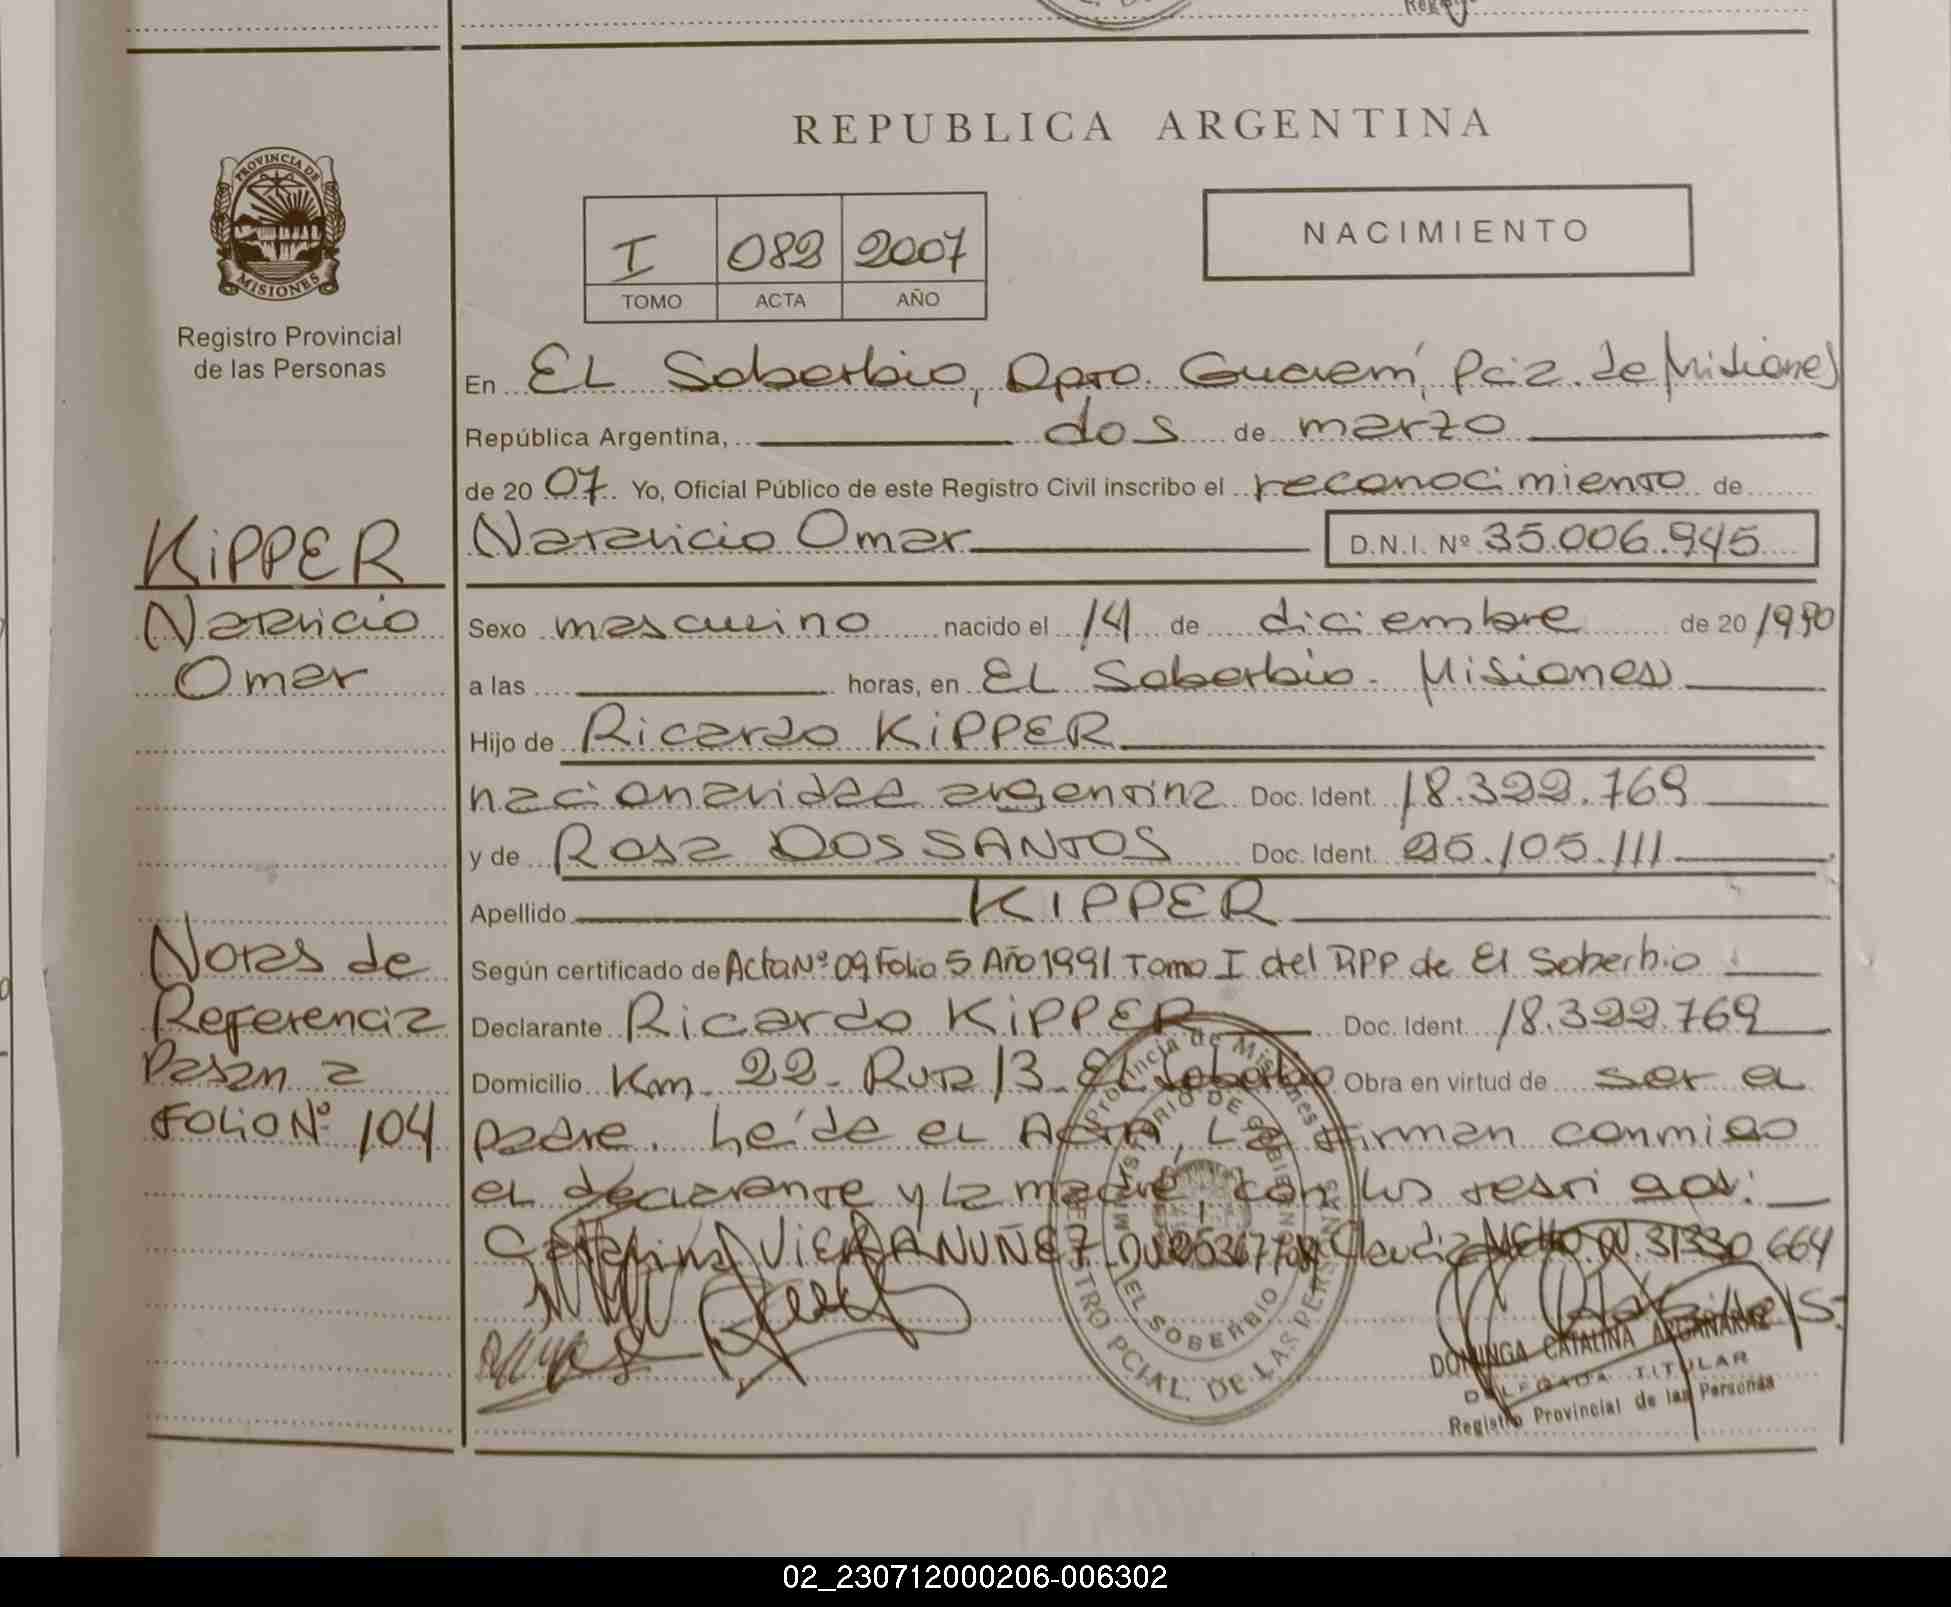 REPUBLICA ARGENTINA
PROVINCIA DE
MISIONES
Registro Provincial
de las Personas
I 082 2007
TOMO ACTA AÑO
NACIMIENTO
En EL Soberbio, Dpto. Guaraní, Pcia. de Misiones
República Argentina, dos de marzo
de 20 07 Yo, Oficial Público de este Registro Civil inscribo el reconocimiento de
Natalicio Omar D.N.I. Nº 35.006.945
KIPPER
Natalicio
Omar
Sexo masculino nacido el 14 de diciembre de 20 1990
a las horas, en EL Soberbio - Misiones
Hijo de Ricardo KIPPER
nacionalidad argentina Doc. Ident. 18.322.769
y de Rosa DOS SANTOS Doc. Ident. 25.105.111
Apellido KIPPER
Según certificado de Acta Nº 09 Folio 5 Año 1991 Tomo I del RPP de El Soberbio
Declarante Ricardo KIPPER Doc. Ident. 18.322.769
Domicilio Km. 22 - Ruta 13 - EL Soberbio Obra en virtud de ser el
padre. Leída el Acta, La firman conmigo
el declarante y la madre con los testigos:
VIERA NUÑEZ Claudia 31330664
Notas de
Referencia
Pasan a
FOLIO Nº 104
Provincia de Misiones
MINISTERIO DE GOBIERNO
EL SOBERBIO
PCIAL. DE LAS PERSONAS
DOMINGA CATALINA ARGAÑARAZ
DELEGADA TITULAR
Registro Provincial de las Personas
02_230712000206-006302